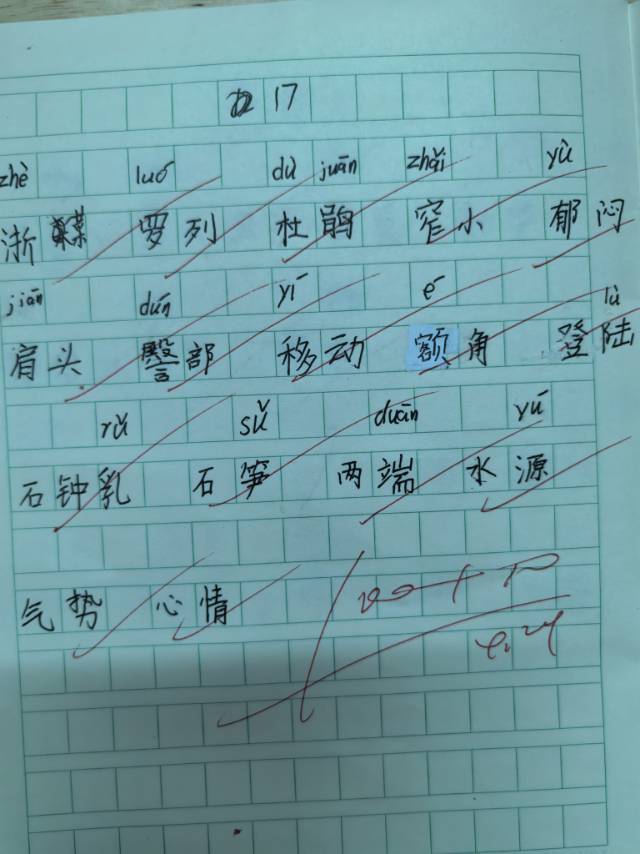 17
zhè luó dù juān zhǎi yù
浙 罗列 杜鹃 窄小 郁闷
jiān dún yí é lù
肩头 臀部 移动 额角 登陆
rǔ sǔ duān yú
石钟乳 石笋 两端 水源
气势 心情